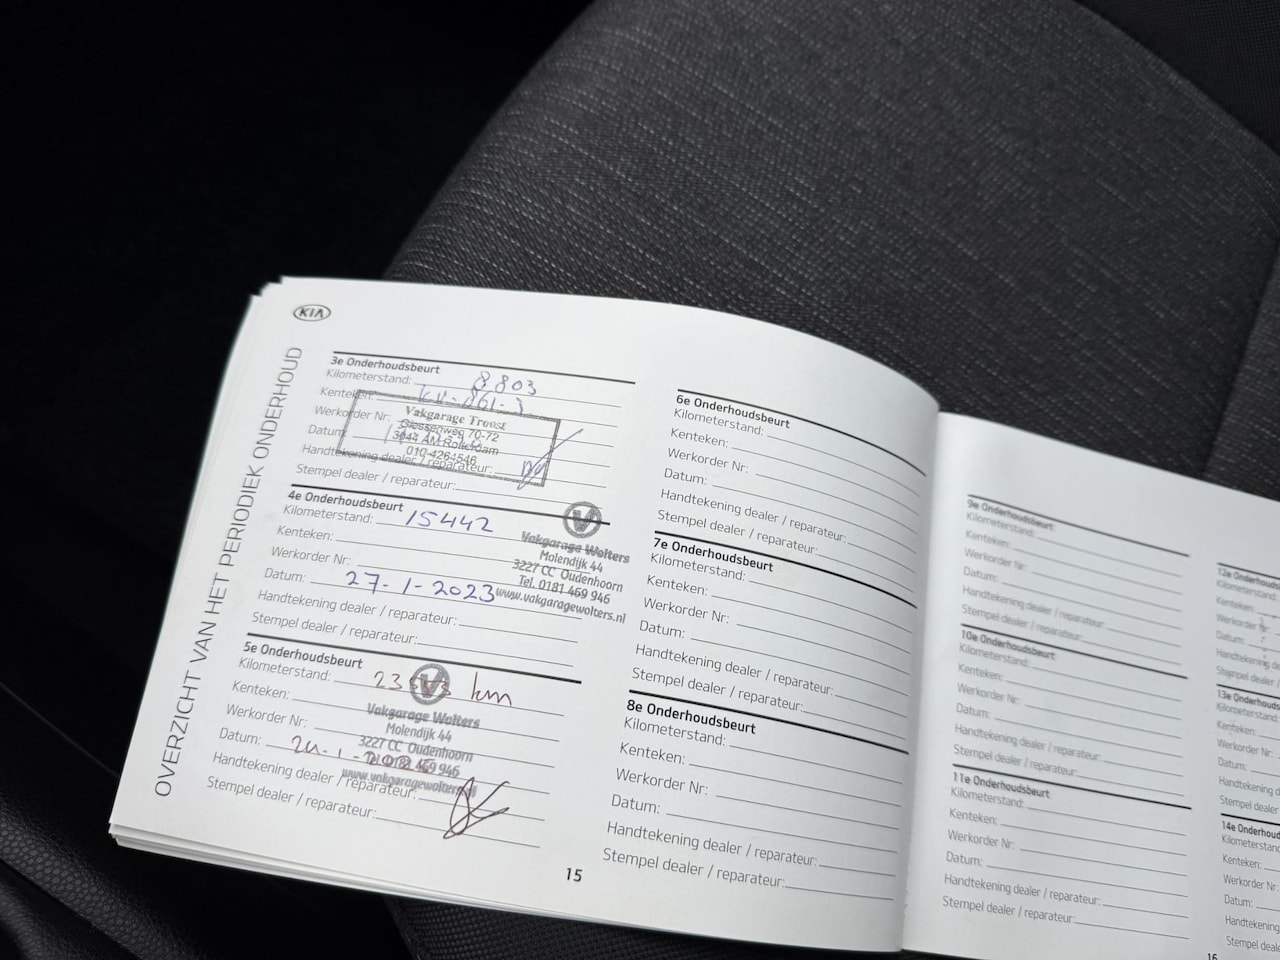 KIA
OVERZICHT VAN HET PERIODIEK ONDERHOUD
3e Onderhoudsbeurt
Kilometerstand: 8803
Kenteken:
Werkorder Nr:
Datum:
Handtekening dealer / reparateur:
Stempel dealer / reparateur:
Vakgarage Troost
70-72
3044 AM Rotterdam
010-4264546
4e Onderhoudsbeurt
Kilometerstand: 15442
Kenteken:
Werkorder Nr:
Datum: 27-1-2023
Handtekening dealer / reparateur:
Stempel dealer / reparateur:
Vakgarage Wolters
Molendijk 44
3227 CC Oudenhoorn
Tel. 0181 469 946
www.vakgaragewolters.nl
5e Onderhoudsbeurt
Kilometerstand: km
Kenteken:
Werkorder Nr:
Datum:
Handtekening dealer / reparateur:
Stempel dealer / reparateur:
Vakgarage Wolters
Molendijk 44
3227 CC Oudenhoorn
Tel. 0181 469 946
www.vakgaragewolters.nl
15
6e Onderhoudsbeurt
Kilometerstand:
Kenteken:
Werkorder Nr:
Datum:
Handtekening dealer / reparateur:
Stempel dealer / reparateur:
7e Onderhoudsbeurt
Kilometerstand:
Kenteken:
Werkorder Nr:
Datum:
Handtekening dealer / reparateur:
Stempel dealer / reparateur:
8e Onderhoudsbeurt
Kilometerstand:
Kenteken:
Werkorder Nr:
Datum:
Handtekening dealer / reparateur:
Stempel dealer / reparateur:
9e Onderhoudsbeurt
Kilometerstand:
Kenteken:
Werkorder Nr:
Datum:
Handtekening dealer / reparateur:
Stempel dealer / reparateur:
10e Onderhoudsbeurt
Kilometerstand:
Kenteken:
Werkorder Nr:
Datum:
Handtekening dealer / reparateur:
Stempel dealer / reparateur:
11e Onderhoudsbeurt
Kilometerstand:
Kenteken:
Werkorder Nr:
Datum:
Handtekening dealer / reparateur:
Stempel dealer / reparateur:
12e
Kilometerstand:
Kenteken:
Werkorder Nr:
Datum:
Handtekening
Stempel dealer
13e
Kilometerstand:
Kenteken:
Werkorder Nr:
Datum:
Handtekening
Stempel dealer
14e
Kenteken:
Werkorder Nr:
Datum:
Handtekening
Stempel dealer
16